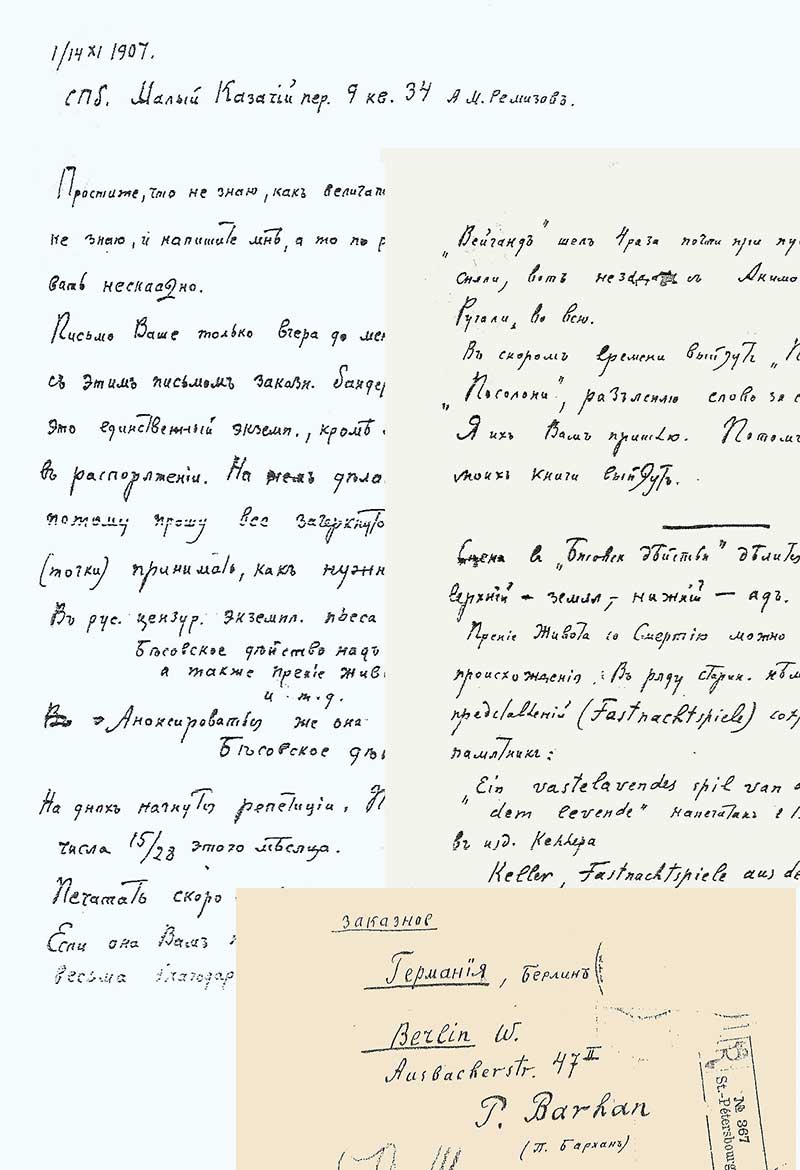 1/14 XI 1907.
СПб. Малый Казачій пер. 9 кв. 34 А М. Ремизовъ.
Простите, что не знаю, какъ величать
не знаю, и напишите мнѣ, а то по р
вать нескладно.
Письмо Ваше только вчера до ме
съ этимъ письмомъ заказн. банде
Это единственный экземп., кромѣ
въ распоряженіи. На немъ дѣла
потому прошу все зачеркнуто
(точки) принимать, какъ нужн
Въ рус. цензур. экземпл. пьеса
Бѣсовское дѣйство надъ
а также преніе жив
и т. д.
Анонсироваться же она
Бѣсовское дѣ
На дняхъ начнутся репетиціи.
числа 15/28 этого мѣсяца.
Печатать скоро
Если она Вамъ
весьма благодар
„Вейгандъ" шелъ 4 раза почти при пу
сняли, вотъ Акимо
Ругали, во всю.
Въ скоромъ времени выйдутъ „
„Посолони", разъясняю слово за с
Я ихъ Вамъ пришлю. Потомъ
моихъ книги выйдутъ.
Сцена въ „Бѣсовск дѣйстви" дѣлится
верхній — земля, — нижній — адъ.
Преніе Живота со Смертію можно
происхожденія: Въ ряду старин. нѣм
представленій (Fastnachtspiele) сох
памятникъ:
„Ein vastelavendes spil van d
dem levende" напечатанъ
въ изд. Келлера
Keller, Fastnachtspiele aus de
заказное
Германія, Берлинъ
Berlin W.
Ausbacherstr. 47 II
P. Barhan
(П. Барханъ)
R
№ 367
St.-Pétersbourg